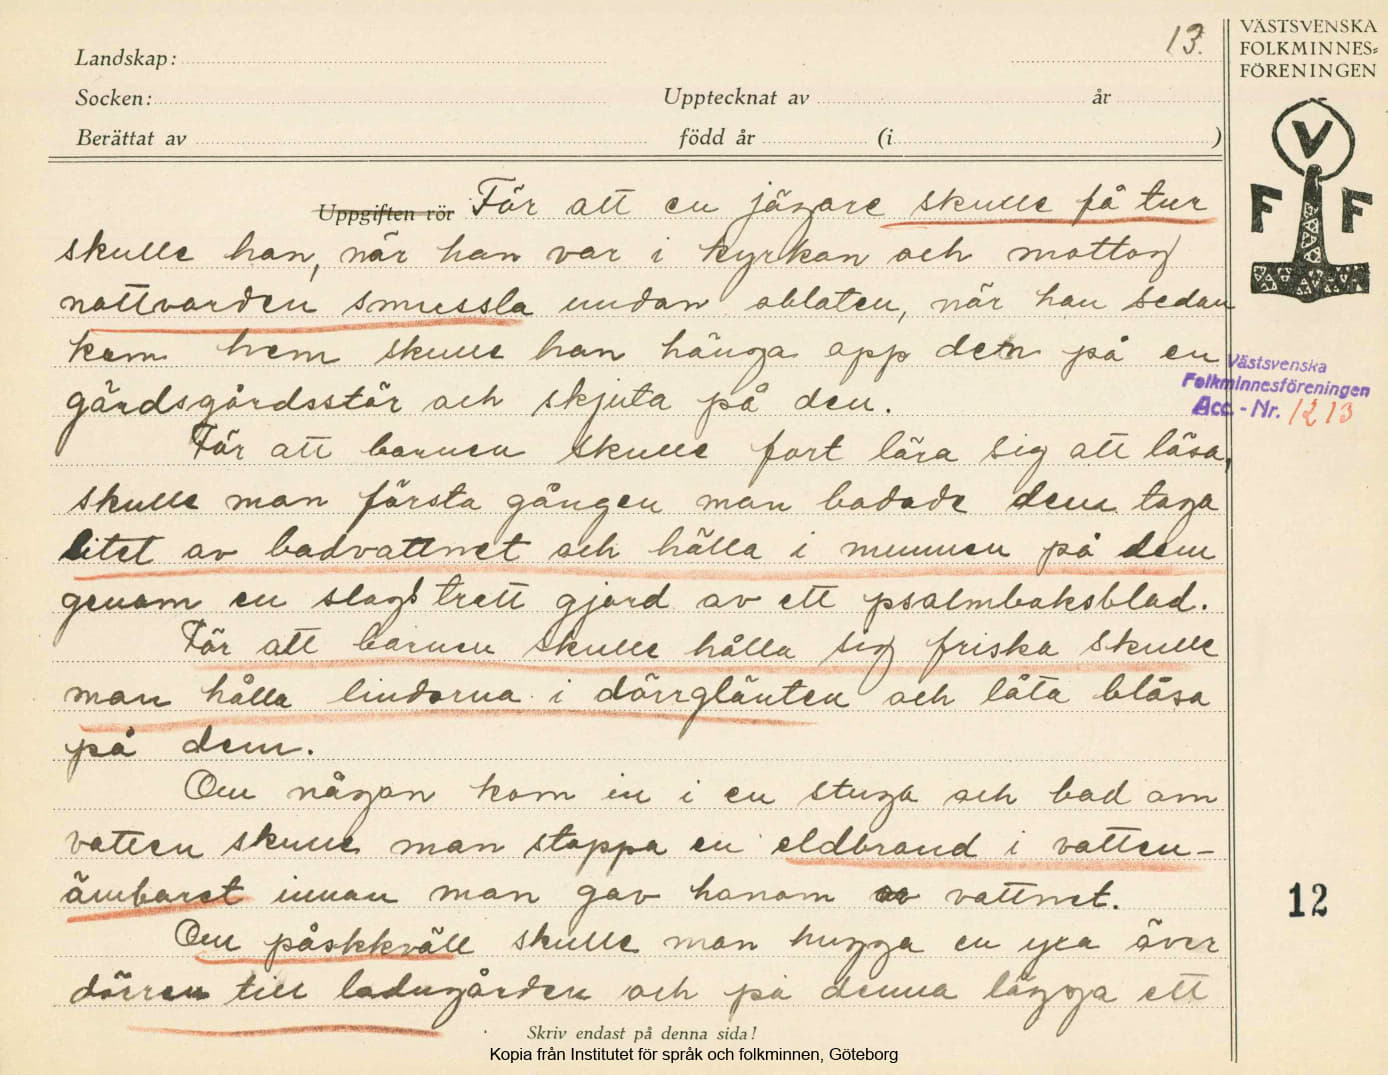 13.
VÄSTSVENSKA
FOLKMINNES-
FÖRENINGEN
Landskap:
Socken:
Upptecknat av år
Berättat av född år (i )
V
F F
Uppgiften rör För att en jägare skulle få tur
skulle han, när han var i kyrkan och mottog
nattvarden smussla undan oblaten, när han sedan
kom hem skulle han hänga opp den på en
gärdsgårdsstör och skjuta på den.
Västsvenska
Folkminnesföreningen
Acc. - Nr. 1213
För att barnen skulle fort lära sig att läsa,
skulle man första gången man badade dem taga
litet av badvattnet och hälla i munnen på dem
genom en slags tratt gjord av ett psalmboksblad.
För att barnen skulle hålla sig friska skulle
man hålla lindorna i dörrglänten och låta blåsa
på dem.
Om någon kom in i en stuga och bad om
vatten skulle man stoppa en eldbrand i vatten-
ämbaret innan man gav honom vattnet.
12
Om påskkväll skulle man hugga en yxa över
dörren till ladugården och på denna lägga ett
Skriv endast på denna sida!
Kopia från Institutet för språk och folkminnen, Göteborg